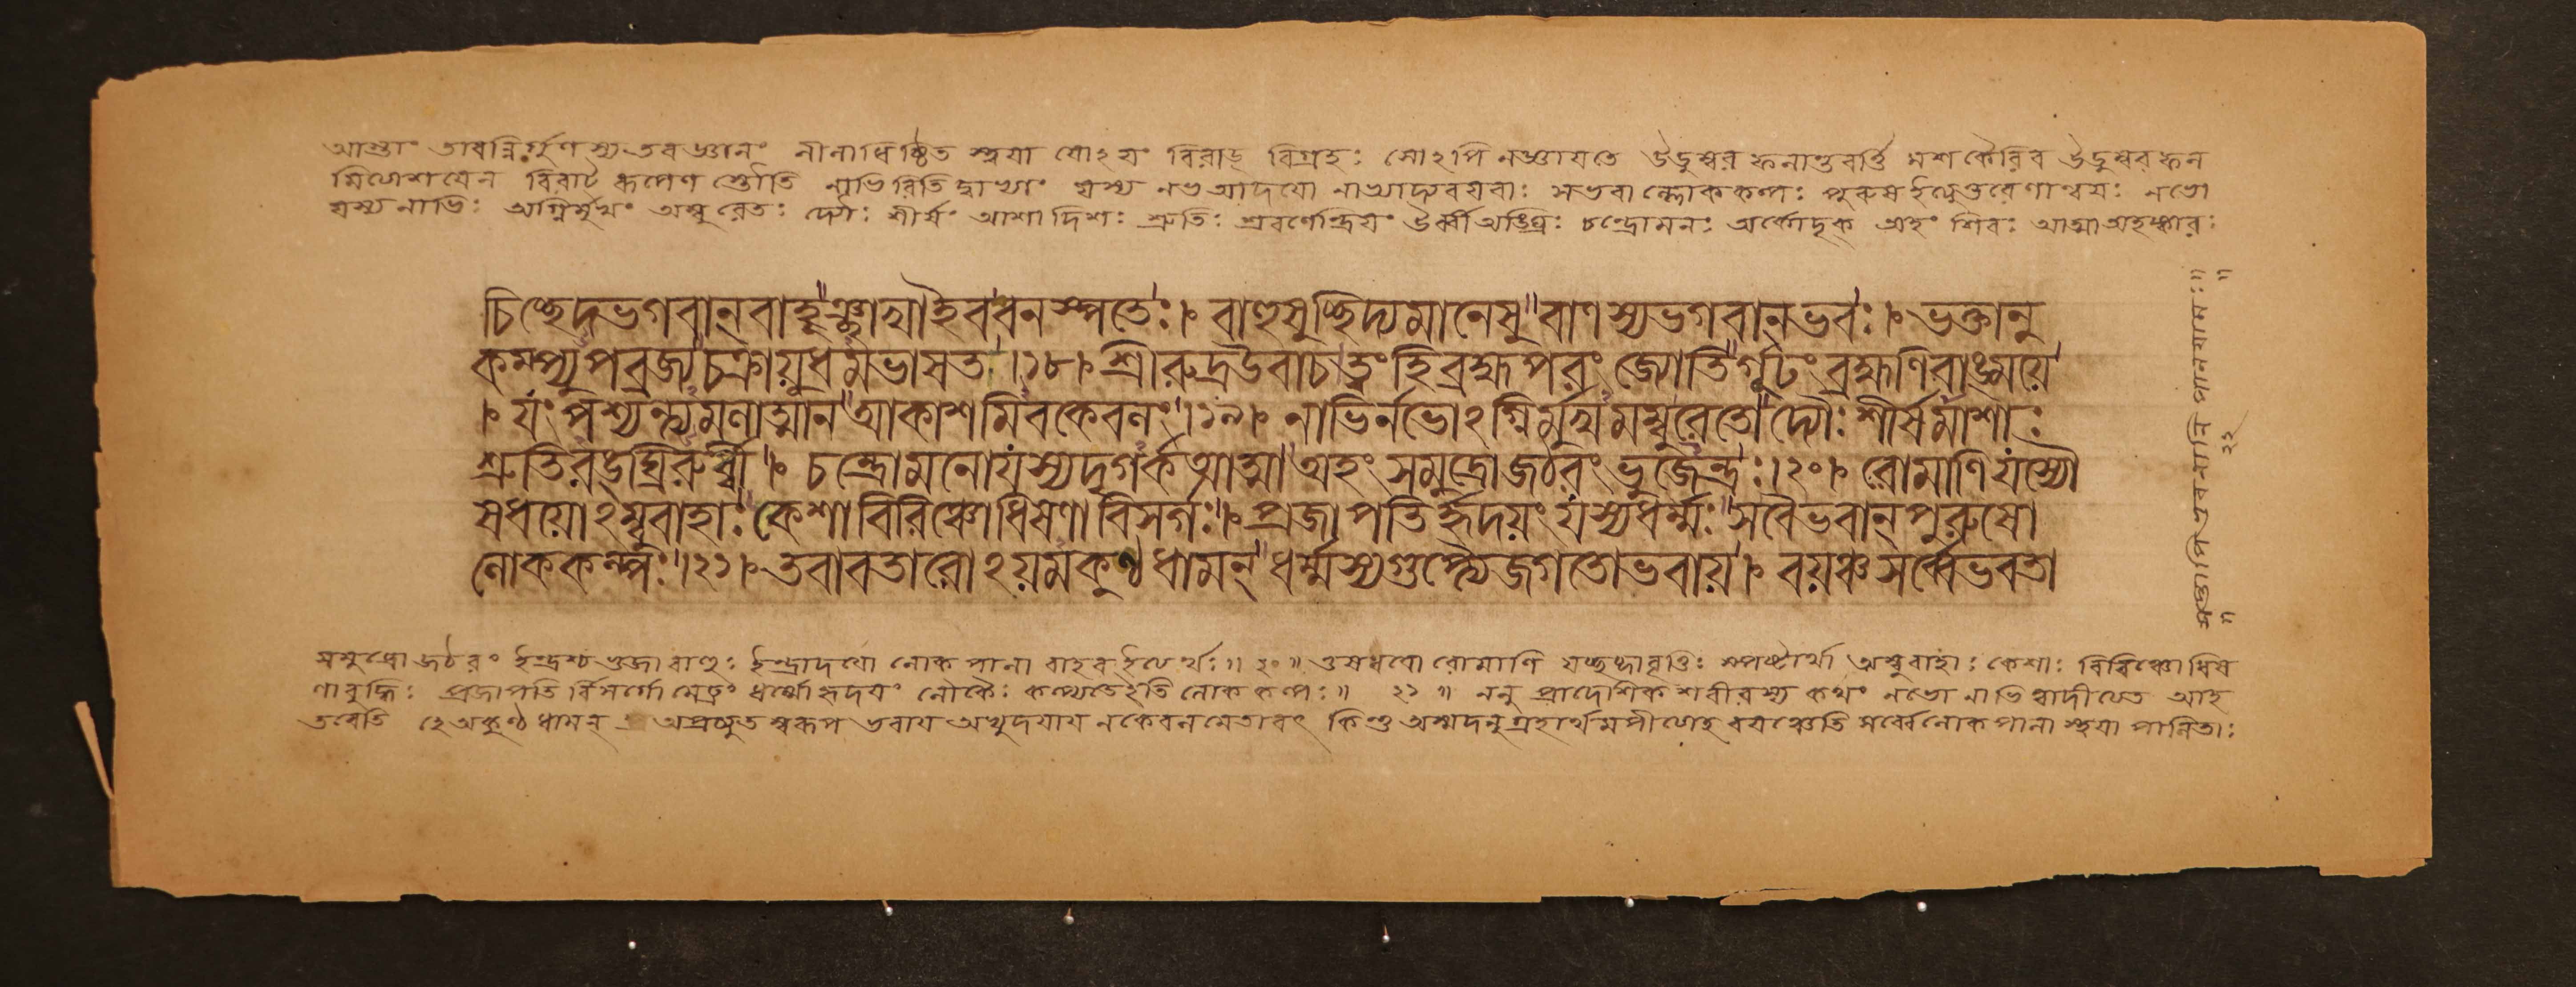 আস্তাং তাবন্নির্গুণস্য তব জ্ঞানং লীলাধিষ্ঠিত স্ত্বয়া যোঽয়ং বিরাড্ বিগ্রহঃ সোঽপি ন জ্ঞায়তে উডুম্বর ফলান্তবর্ত্তি মশকৈরিব উডুম্বরফল
মিত্যাশয়েন বিরাট রূপেণ স্তৌতি নাভিরিতি দ্বাভ্যাং যস্য নভ আদয়ো নাভ্যাদ্যবয়বাঃ সভবান্ লোককল্পঃ পুরুষ ইত্যুত্তরেণান্বয়ঃ নভো
যস্য নাভিঃ অগ্নির্মুখং অম্বু রেতঃ দ্যৌঃ শীর্ষং আশা দিশঃ শ্রুতিঃ শ্রবণেন্দ্রিয়ং ঊর্ব্বী অঙ্ঘ্রিঃ চন্দ্রো মনঃ অর্কো দৃক্ অহং শিবঃ আত্মা অহঙ্কারঃ
চিচ্ছেদ ভগবান্ বাহূঞ্ছাখা ইব বনস্পতেঃ। বাহুষুচ্ছিদ্যমানেষু বাণস্য ভগবান্ ভবঃ। ভক্তানু
কম্প্যুপব্রজ্য চক্রায়ুধমভাষত।১৮। শ্রীরুদ্রউবাচ ত্বং হি ব্রহ্ম পরং জ্যোতির্গূঢং ব্রহ্মণি বাঙ্ময়ে
। যং পশ্যন্ত্যমলাত্মান আকাশমিব কেবলং।১৯। নাভির্নভোঽগ্নির্মুখমম্বু রেতো দ্যৌঃ শীর্ষমাশাঃ
শ্রুতিরঙ্ঘ্রিরুর্ব্বী। চন্দ্রো মনো যস্য দৃগর্ক আত্মা অহং সমুদ্রো জঠরং ভুজেন্দ্রঃ।২০। রোমাণি যস্যৌ
ষধয়োঽম্বুবাহাঃ কেশা বিরিঞ্চো ধিষণা বিসর্গঃ। প্রজাপতির্হৃদয়ং যস্য ধর্ম্মঃ স বৈ ভবান্ পুরুষো
লোককল্পঃ।২১। তবাবতারোঽয়মকুণ্ঠধামন্ ধর্ম্মস্য গুপ্ত্যৈ জগতো ভবায়। বয়ঞ্চ সর্ব্বে ভবতা
সমুদ্রো জঠরং ইন্দ্রশ্চ ভুজা বাহুঃ ইন্দ্রাদয়ো লোকপালা বাহব ইত্যর্থঃ॥২০॥ ওষধয়ো রোমাণি অম্বুবাহাঃ কেশাঃ বিরিঞ্চো ধিষ
ণা বুদ্ধিঃ প্রজাপতি র্বিসর্গো মেঢ্রং ধর্ম্মো হৃদয়ং লোকৈঃ কল্প্যতে ইতি লোককল্পঃ॥ ২১॥ ননু প্রাদেশিক শরীরস্য কথং নভো নাভি আহ
তবেতি হে অকুণ্ঠধামন্ অপ্রচ্যুত স্বরূপ ভবায় অভ্যুদয়ায় ন কেবলমেতাবৎ কিন্তু অস্মদনুগ্রহার্থমপীত্যাহ বয়ঞ্চেতি সর্ব্বে লোকপালা স্ত্বয়া পালিতাঃ
২২